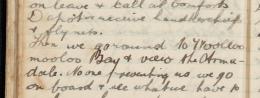 on leave & call at Comforts
Depôt & receive handkerchief
& flynets.
Then we go round to Woolloo
mooloo Bay & view the Arma-
dale. No one preventing us we go
on board & see what we have to